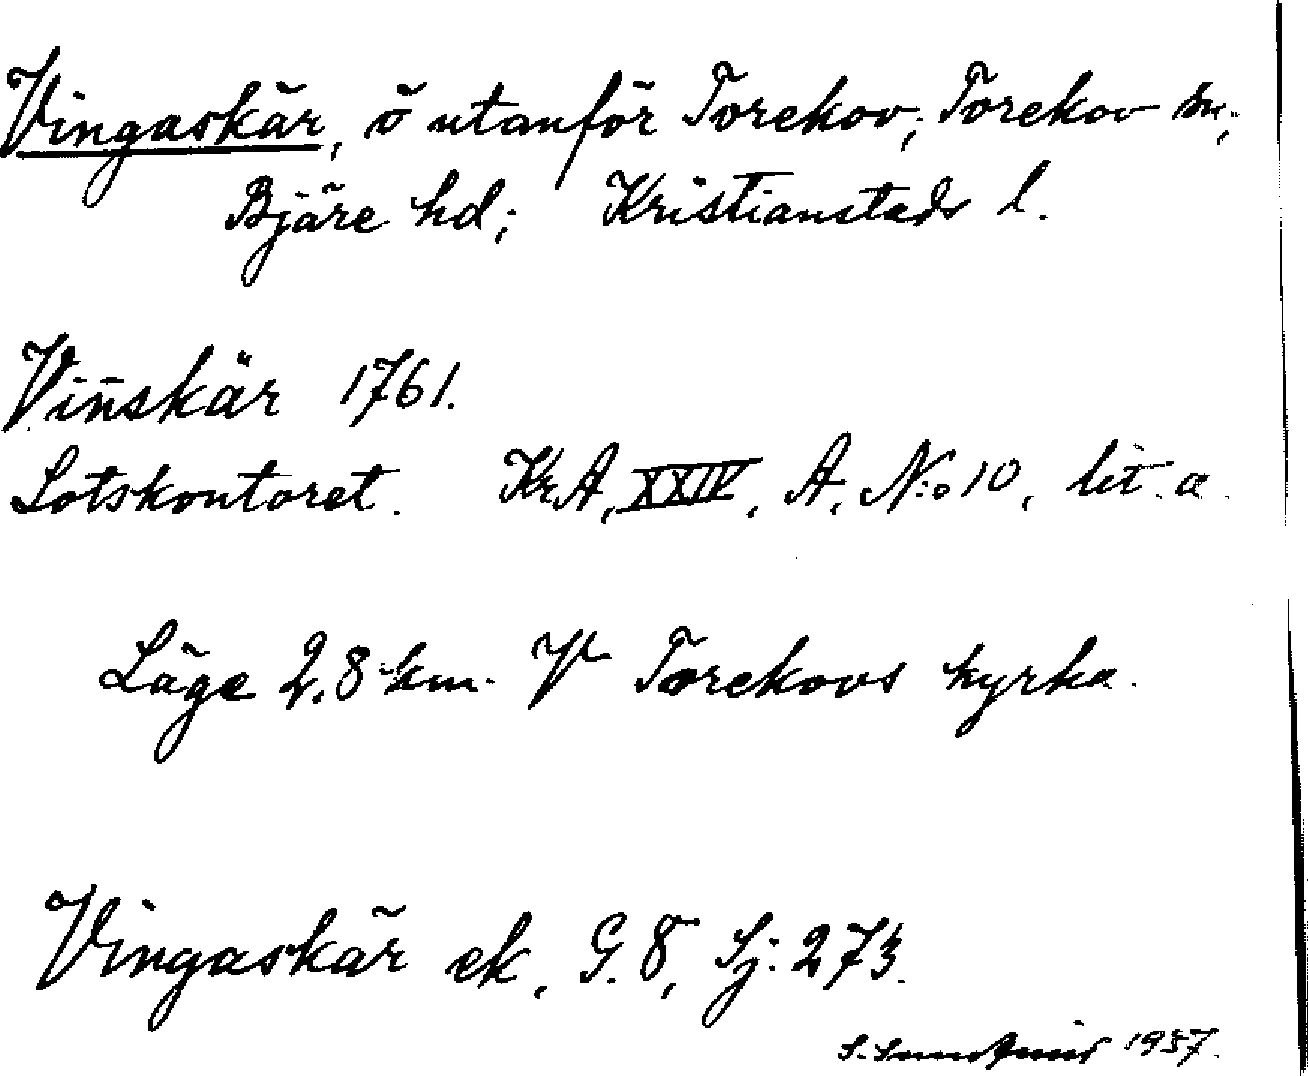 Vingaskär, ö utanför Torekov; Torekov sn;
Bjäre hd; Kristianstads l.
Vin̄skär 1761.
Lotskontoret. KrA, XXIV, A, N:o 10, lit. a.
Läge 2,8 km. V Torekovs kyrka.
Vingaskär ek, G. 8, Sj: 273.
S. 1957.